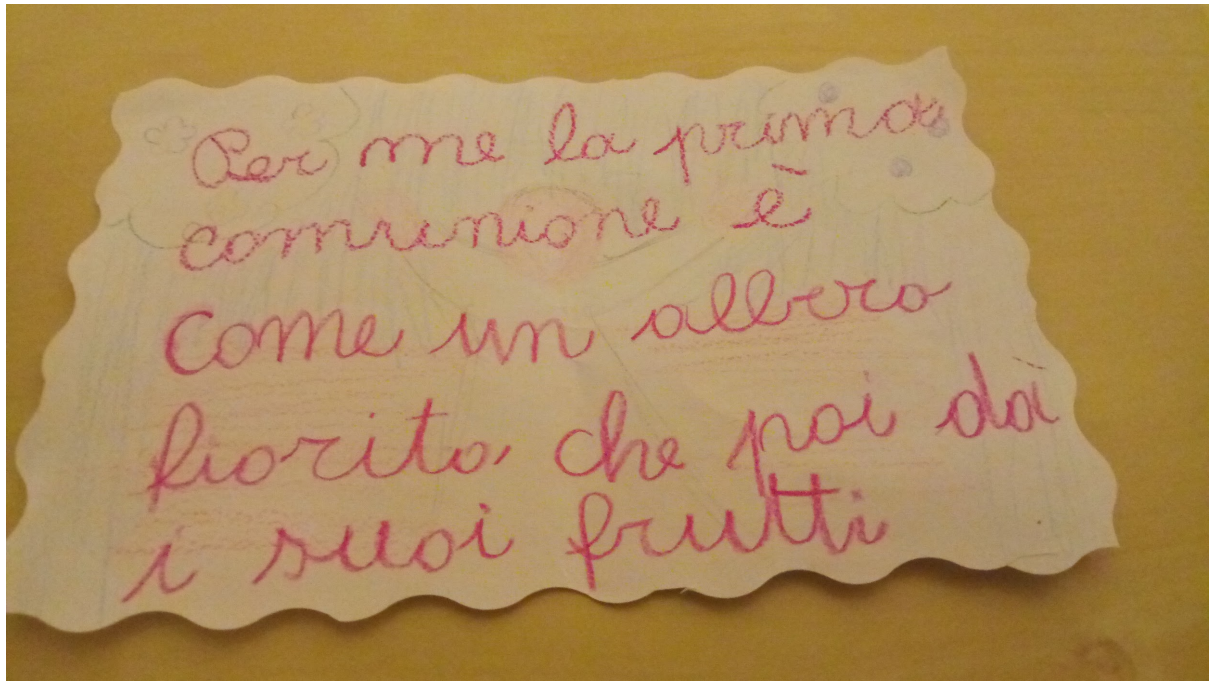 Per me la prima
comunione è
come un albero
fiorito che poi dà
i suoi frutti